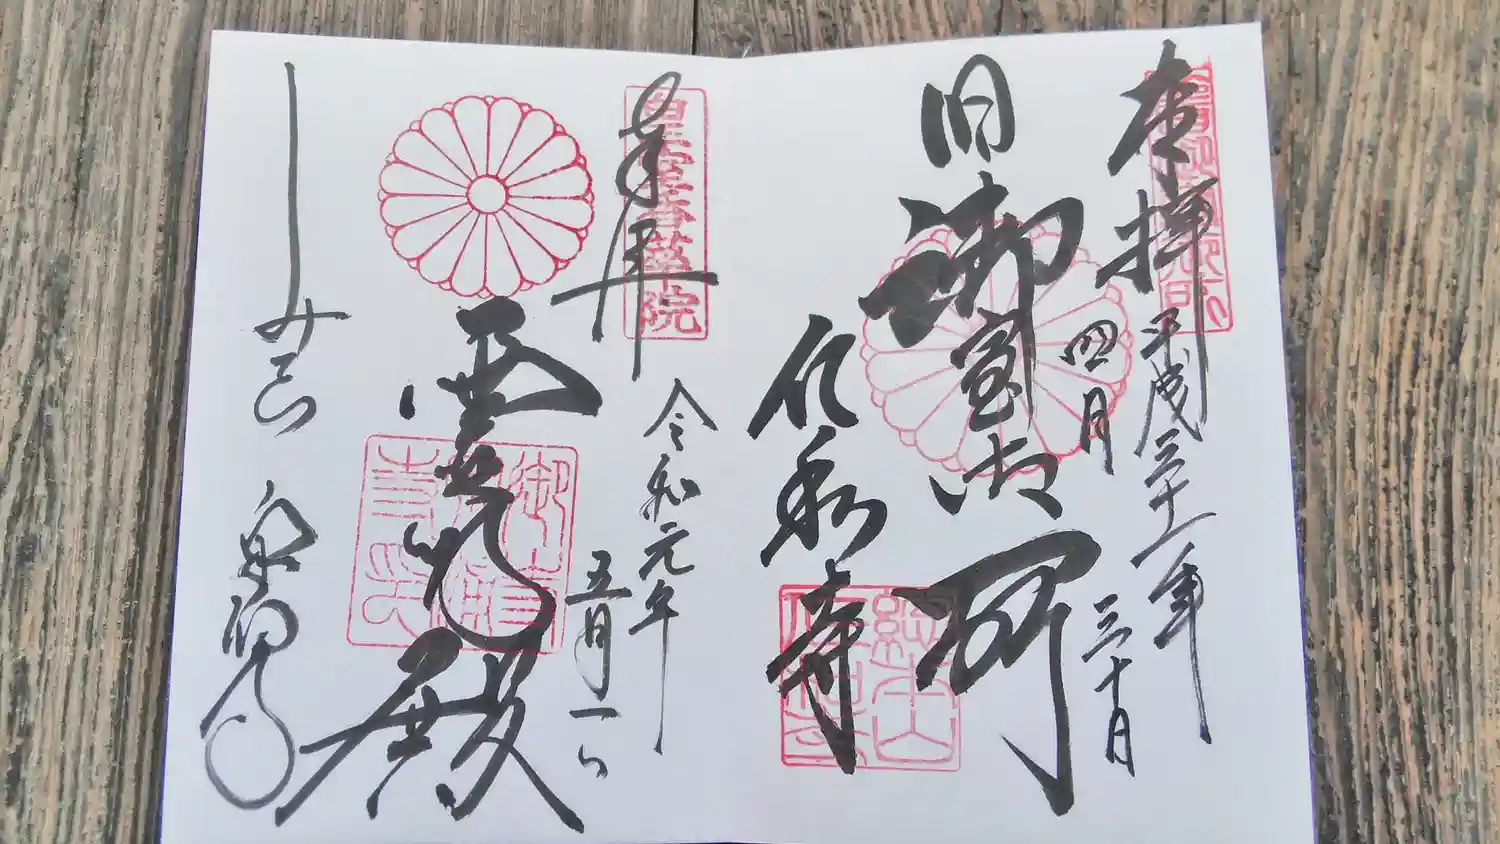 奉拝
平成三十一年
四月三十日
旧御室御所
仁和寺
奉拝
皇室香華院
令和元年
五月一日
霊明殿
みてら 泉涌寺